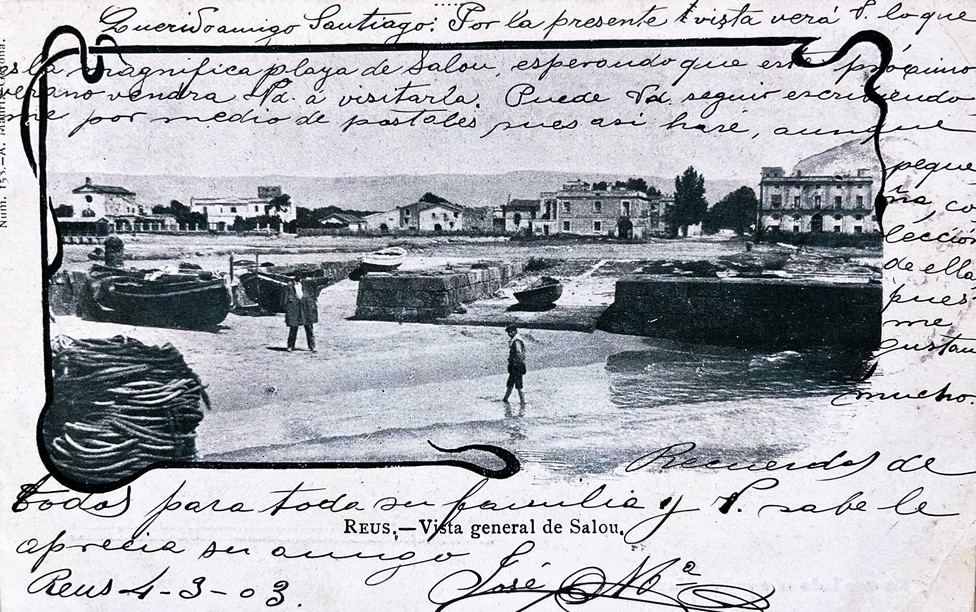 Querido amigo Santiago: Por la presente vista verá V. lo que
es la magnifica playa de Salou, esperando que este próximo
verano vendra Vd. á visitarla. Puede Vd. seguir escribiendo
me por medio de postales pues asi haré, aunque
peque
ña co
lección
de ella
pues
me
gustan
mucho.
Recuerdos de
todos para toda su familia y V. sabe le
REUS.—Vista general de Salou.
aprecia su amigo
José Mª
Reus 4-3-03.
Núm. 153.—A.